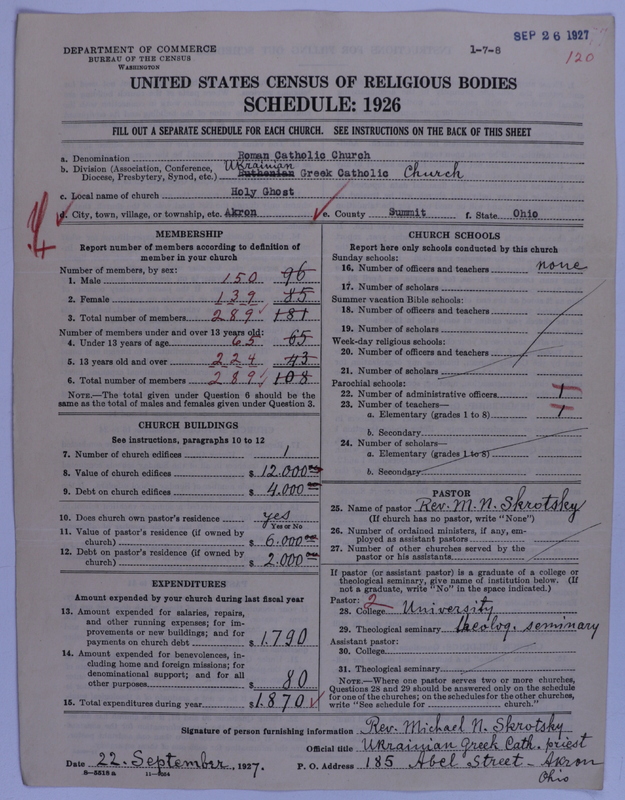 SEP 26 1927
120
DEPARTMENT OF COMMERCE
BUREAU OF THE CENSUS
WASHINGTON
1-7-8
UNITED STATES CENSUS OF RELIGIOUS BODIES
SCHEDULE: 1926
FILL OUT A SEPARATE SCHEDULE FOR EACH CHURCH. SEE INSTRUCTIONS ON THE BACK OF THIS SHEET
a. Denomination Roman Catholic Church
b. Division (Association, Conference, Diocese, Presbytery, Synod, etc.) Ukrainian Ruthenian Greek Catholic Church
c. Local name of church Holy Ghost
d. City, town, village, or township, etc. Akron e. County Summit f. State Ohio
MEMBERSHIP
Report number of members according to definition of
member in your church
Number of members, by sex:
1. Male 150 96
2. Female 139 85
3. Total number of members 289 181
Number of members under and over 13 years old:
4. Under 13 years of age 65 65
5. 13 years old and over 224 43
6. Total number of members 289 108
NOTE.—The total given under Question 6 should be
same as the total of males and females given under Question 3.
CHURCH BUILDINGS
See instructions, paragraphs 10 to 12
7. Number of church edifices 1
8. Value of church edifices $ 12.000
9. Debt on church edifices $ 4.000
10. Does church own pastor's residence yes
Yes or No
11. Value of pastor's residence (if owned by
church) $ 6.000
12. Debt on pastor's residence (if owned by
church) $ 2.000
EXPENDITURES
Amount expended by your church during last fiscal year
13. Amount expended for salaries, repairs,
and other running expenses; for im-
provements or new buildings; and for
payments on church debt $ 1.790
14. Amount expended for benevolences, in-
cluding home and foreign missions; for
denominational support; and for all
other purposes $ 80
15. Total expenditures during year $ 1.870
CHURCH SCHOOLS
Report here only schools conducted by this church
Sunday schools:
16. Number of officers and teachers none
17. Number of scholars
Summer vacation Bible schools:
18. Number of officers and teachers
19. Number of scholars
Week-day religious schools:
20. Number of officers and teachers
21. Number of scholars
Parochial schools:
22. Number of administrative officers 1
23. Number of teachers—
a. Elementary (grades 1 to 8) 1
b. Secondary
24. Number of scholars—
a. Elementary (grades 1 to 8)
b. Secondary
PASTOR
25. Name of pastor Rev. M. N. Skrotsky
(If church has no pastor, write "None")
26. Number of ordained ministers, if any, em-
ployed as assistant pastors
27. Number of other churches served by the
pastor or his assistants
If pastor (or assistant pastor) is a graduate of a college or
theological seminary, give name of institution below. (If
not a graduate, write "No" in the space indicated.)
Pastor: 2
28. College University
29. Theological seminary theolog. seminary
Assistant pastor:
30. College
31. Theological seminary
NOTE.—Where one pastor serves two or more churches,
Questions 28 and 29 should be answered only on the schedule
for one of the churches; on the schedules for the other churches,
write "See schedule for church."
Signature of person furnishing information Rev. Michael N. Skrotsky
Official title Ukrainian Greek Cath. priest
Date 22. September, 1927. P. O. Address 185 Abel Street - Akron
Ohio
8—5518 a